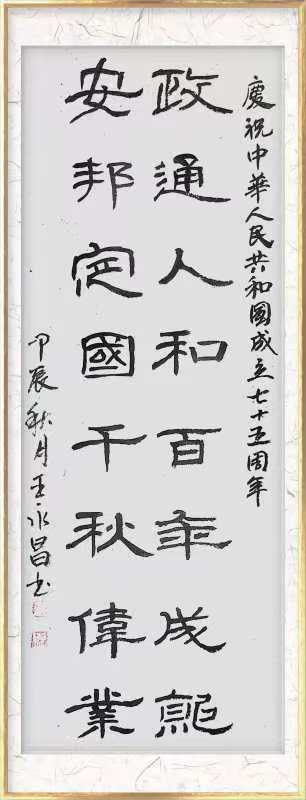 慶祝中華人民共和國成立七十五周年
政通人和百年成就
安邦定國千秋偉業
甲辰秋月王永昌书